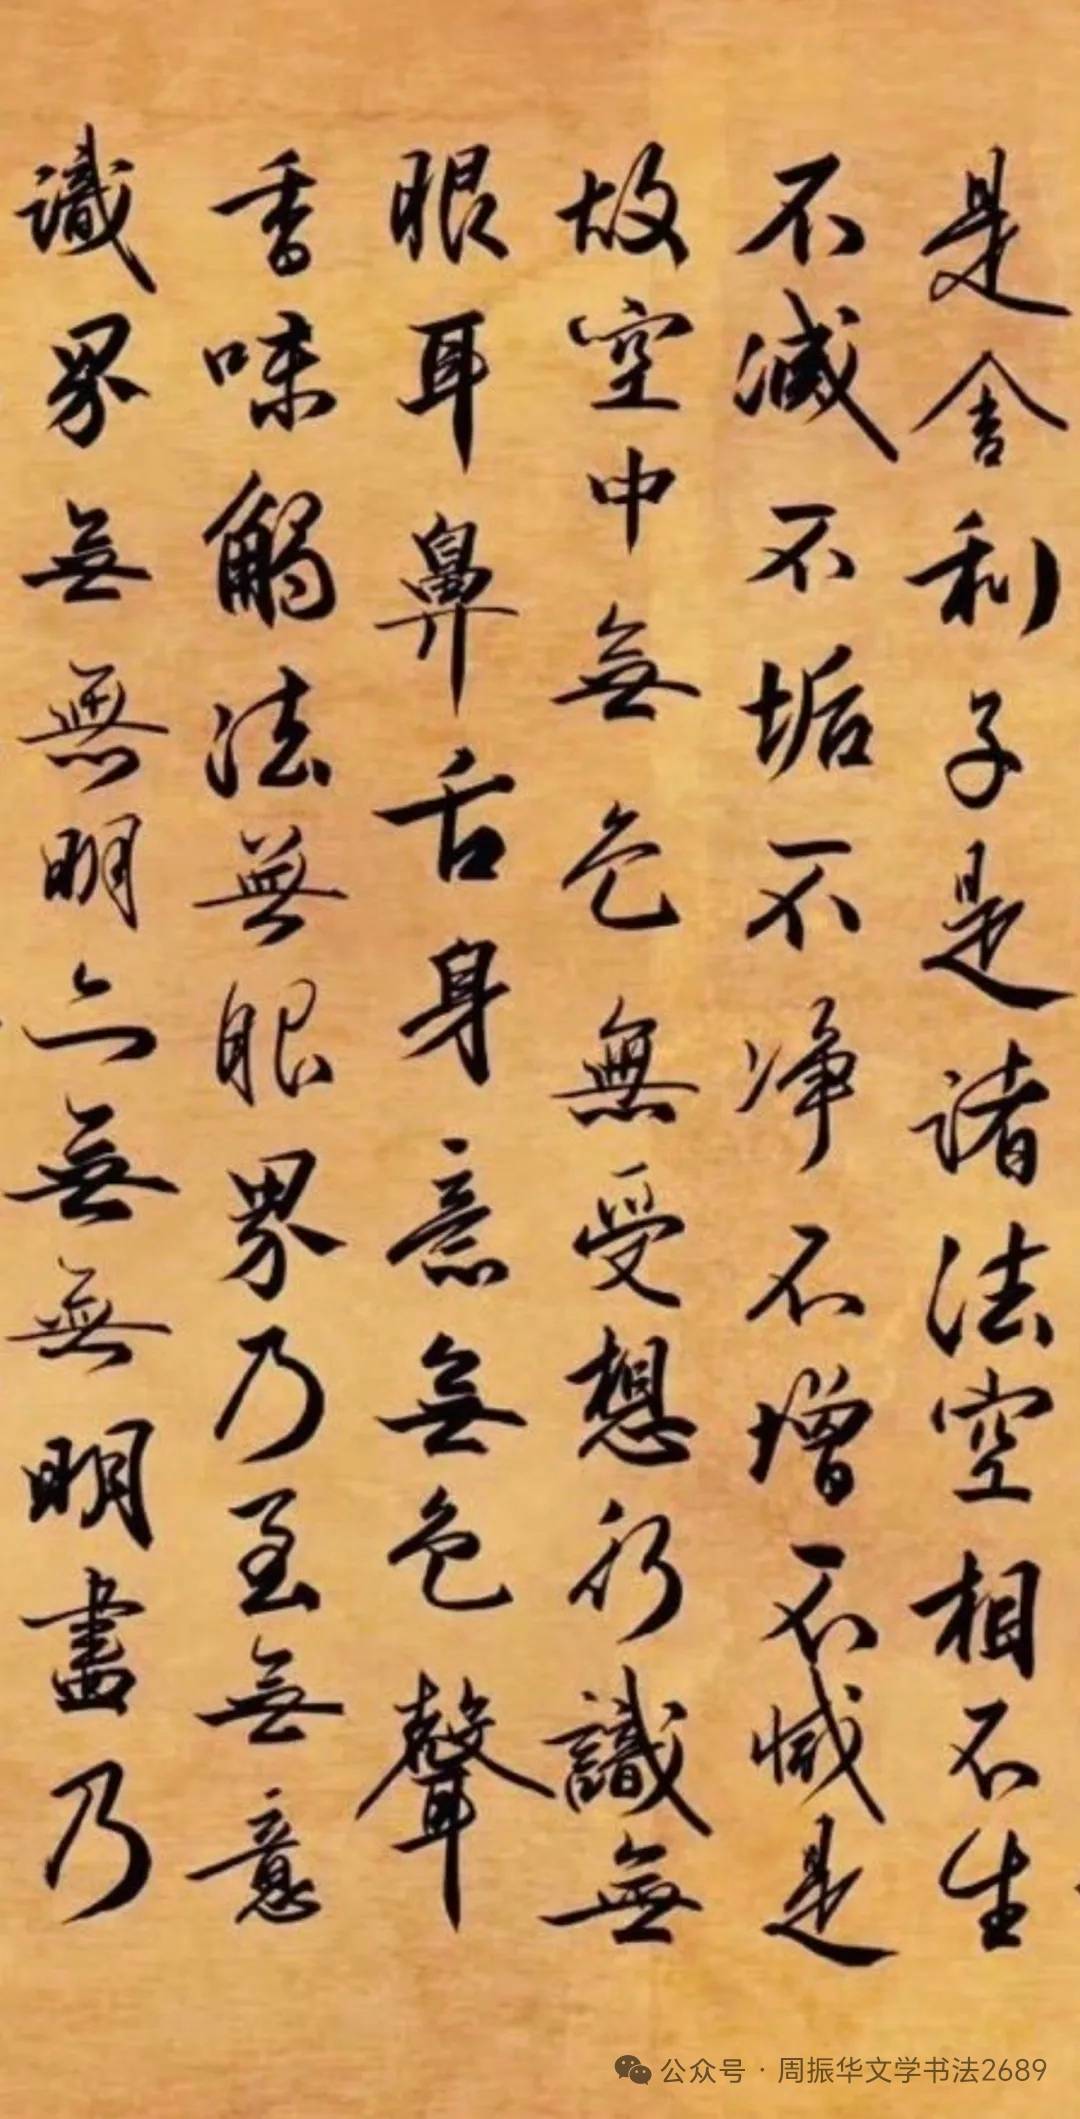 是舍利子是諸法空相不生
不滅不垢不净不增不減是
故空中無色無受想行識無
眼耳鼻舌身意無色聲
香味觸法無眼界乃至無意
識界無無明亦無無明盡乃
公众号·周振华文学书法2689